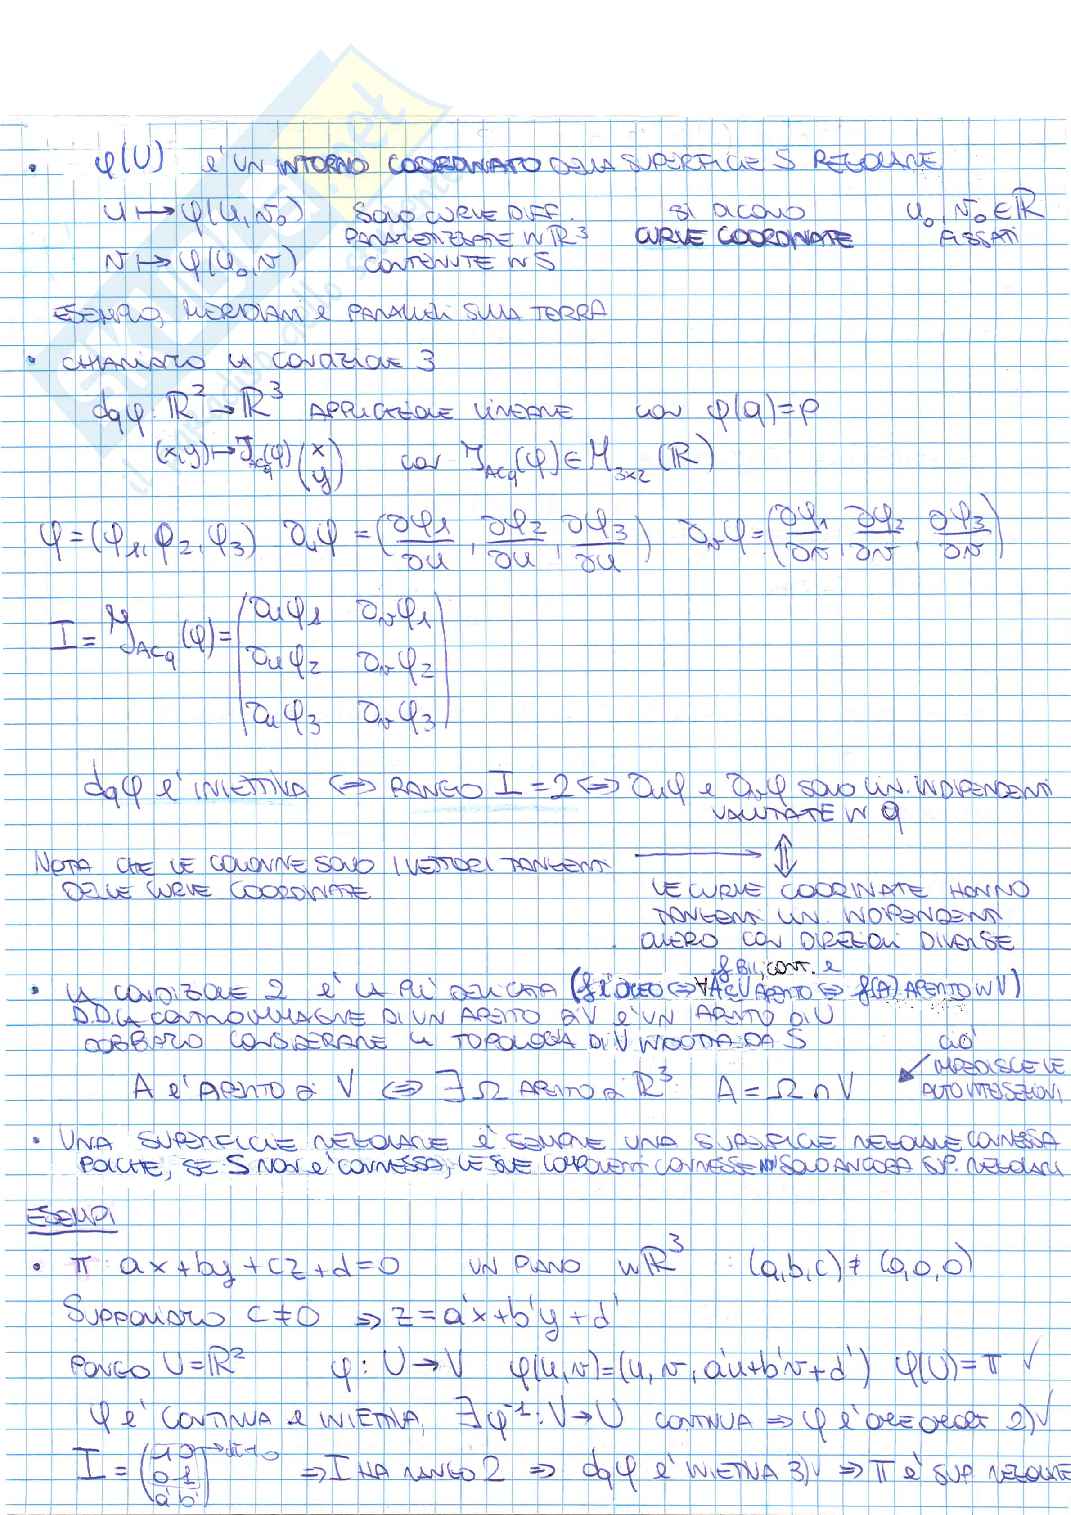 • φ(U) È UN INTORNO COORDINATO DELLA SUPERFICIE S REGOLARE
u ↦ φ(u, v₀) SONO CURVE DIFF. SI DICONO u₀, v₀ ∈ ℝ
PARAMETRIZZATE IN ℝ³ CURVE COORDINATE FISSATI
v ↦ φ(u₀, v) CONTENUTE IN S
ESEMPIO, MERIDIANI E PARALLELI SULLA TERRA
• CHIAMIAMO LA CONDIZIONE 3
dqφ: ℝ² → ℝ³ APPLICAZIONE LINEARE CON φ(q) = p
(x,y) ↦ Jacq(φ) (x y) CON Jacq(φ) ∈ M₃ₓ₂(ℝ)
φ = (φ₁, φ₂, φ₃) ∂uφ = (∂φ₁/∂u, ∂φ₂/∂u, ∂φ₃/∂u) ∂vφ = (∂φ₁/∂v, ∂φ₂/∂v, ∂φ₃/∂v)
I = Jacq(φ) = (∂uφ₁ ∂vφ₁
∂uφ₂ ∂vφ₂
∂uφ₃ ∂vφ₃)
dqφ È INIETTIVA ⟺ RANGO I = 2 ⟺ ∂uφ e ∂vφ SONO LIN. INDIPENDENTI
VALUTATE IN q
NOTA CHE LE COLONNE SONO I VETTORI TANGENTI → ⇕
DELLE CURVE COORDINATE LE CURVE COORDINATE HANNO
TANGENTI LIN. INDIPENDENTI
OVVERO CON DIREZIONI DIVERSE
f BII, CONT. e
• LA CONDIZIONE 2 È LA PIÙ DELICATA (f È OMEO ⟺ ∀A⊂U APERTO ⟺ f(A) APERTO IN V)
CONTROIMMAGINE DI UN APERTO DI V È UN APERTO DI U
DOBBIAMO CONSIDERARE LA TOPOLOGIA DI V INDOTTA DA S CIÒ
IMPEDISCE LE
A È APERTO DI V ⟺ ∃Ω APERTO DI ℝ³ A = Ω ∩ V AUTOINTERSEZIONI
• UNA SUPERFICIE REGOLARE È SEMPRE UNA SUPERFICIE REGOLARE CONNESSA
POICHE, SE S NON È CONNESSA, LE SUE COMPONENTI CONNESSE SONO ANCORA SUP. REGOLARI
ESEMPI
• π: ax + by + cz + d = 0 UN PIANO IN ℝ³ : (a,b,c) ≠ (0,0,0)
SUPPONIAMO c ≠ 0 ⇒ z = a'x + b'y + d'
PONGO U = ℝ² φ: U → V φ(u,v) = (u, v, a'u + b'v + d') φ(U) = π ✓
φ È CONTINUA E INIETTIVA, ∃φ⁻¹: V → U CONTINUA ⇒ φ È 2) ✓
I = (1 0
0 1
a' b') ⇒ I HA RANGO 2 ⇒ dqφ È INIETTIVA 3) ✓ ⇒ π È SUP. REGOLARE